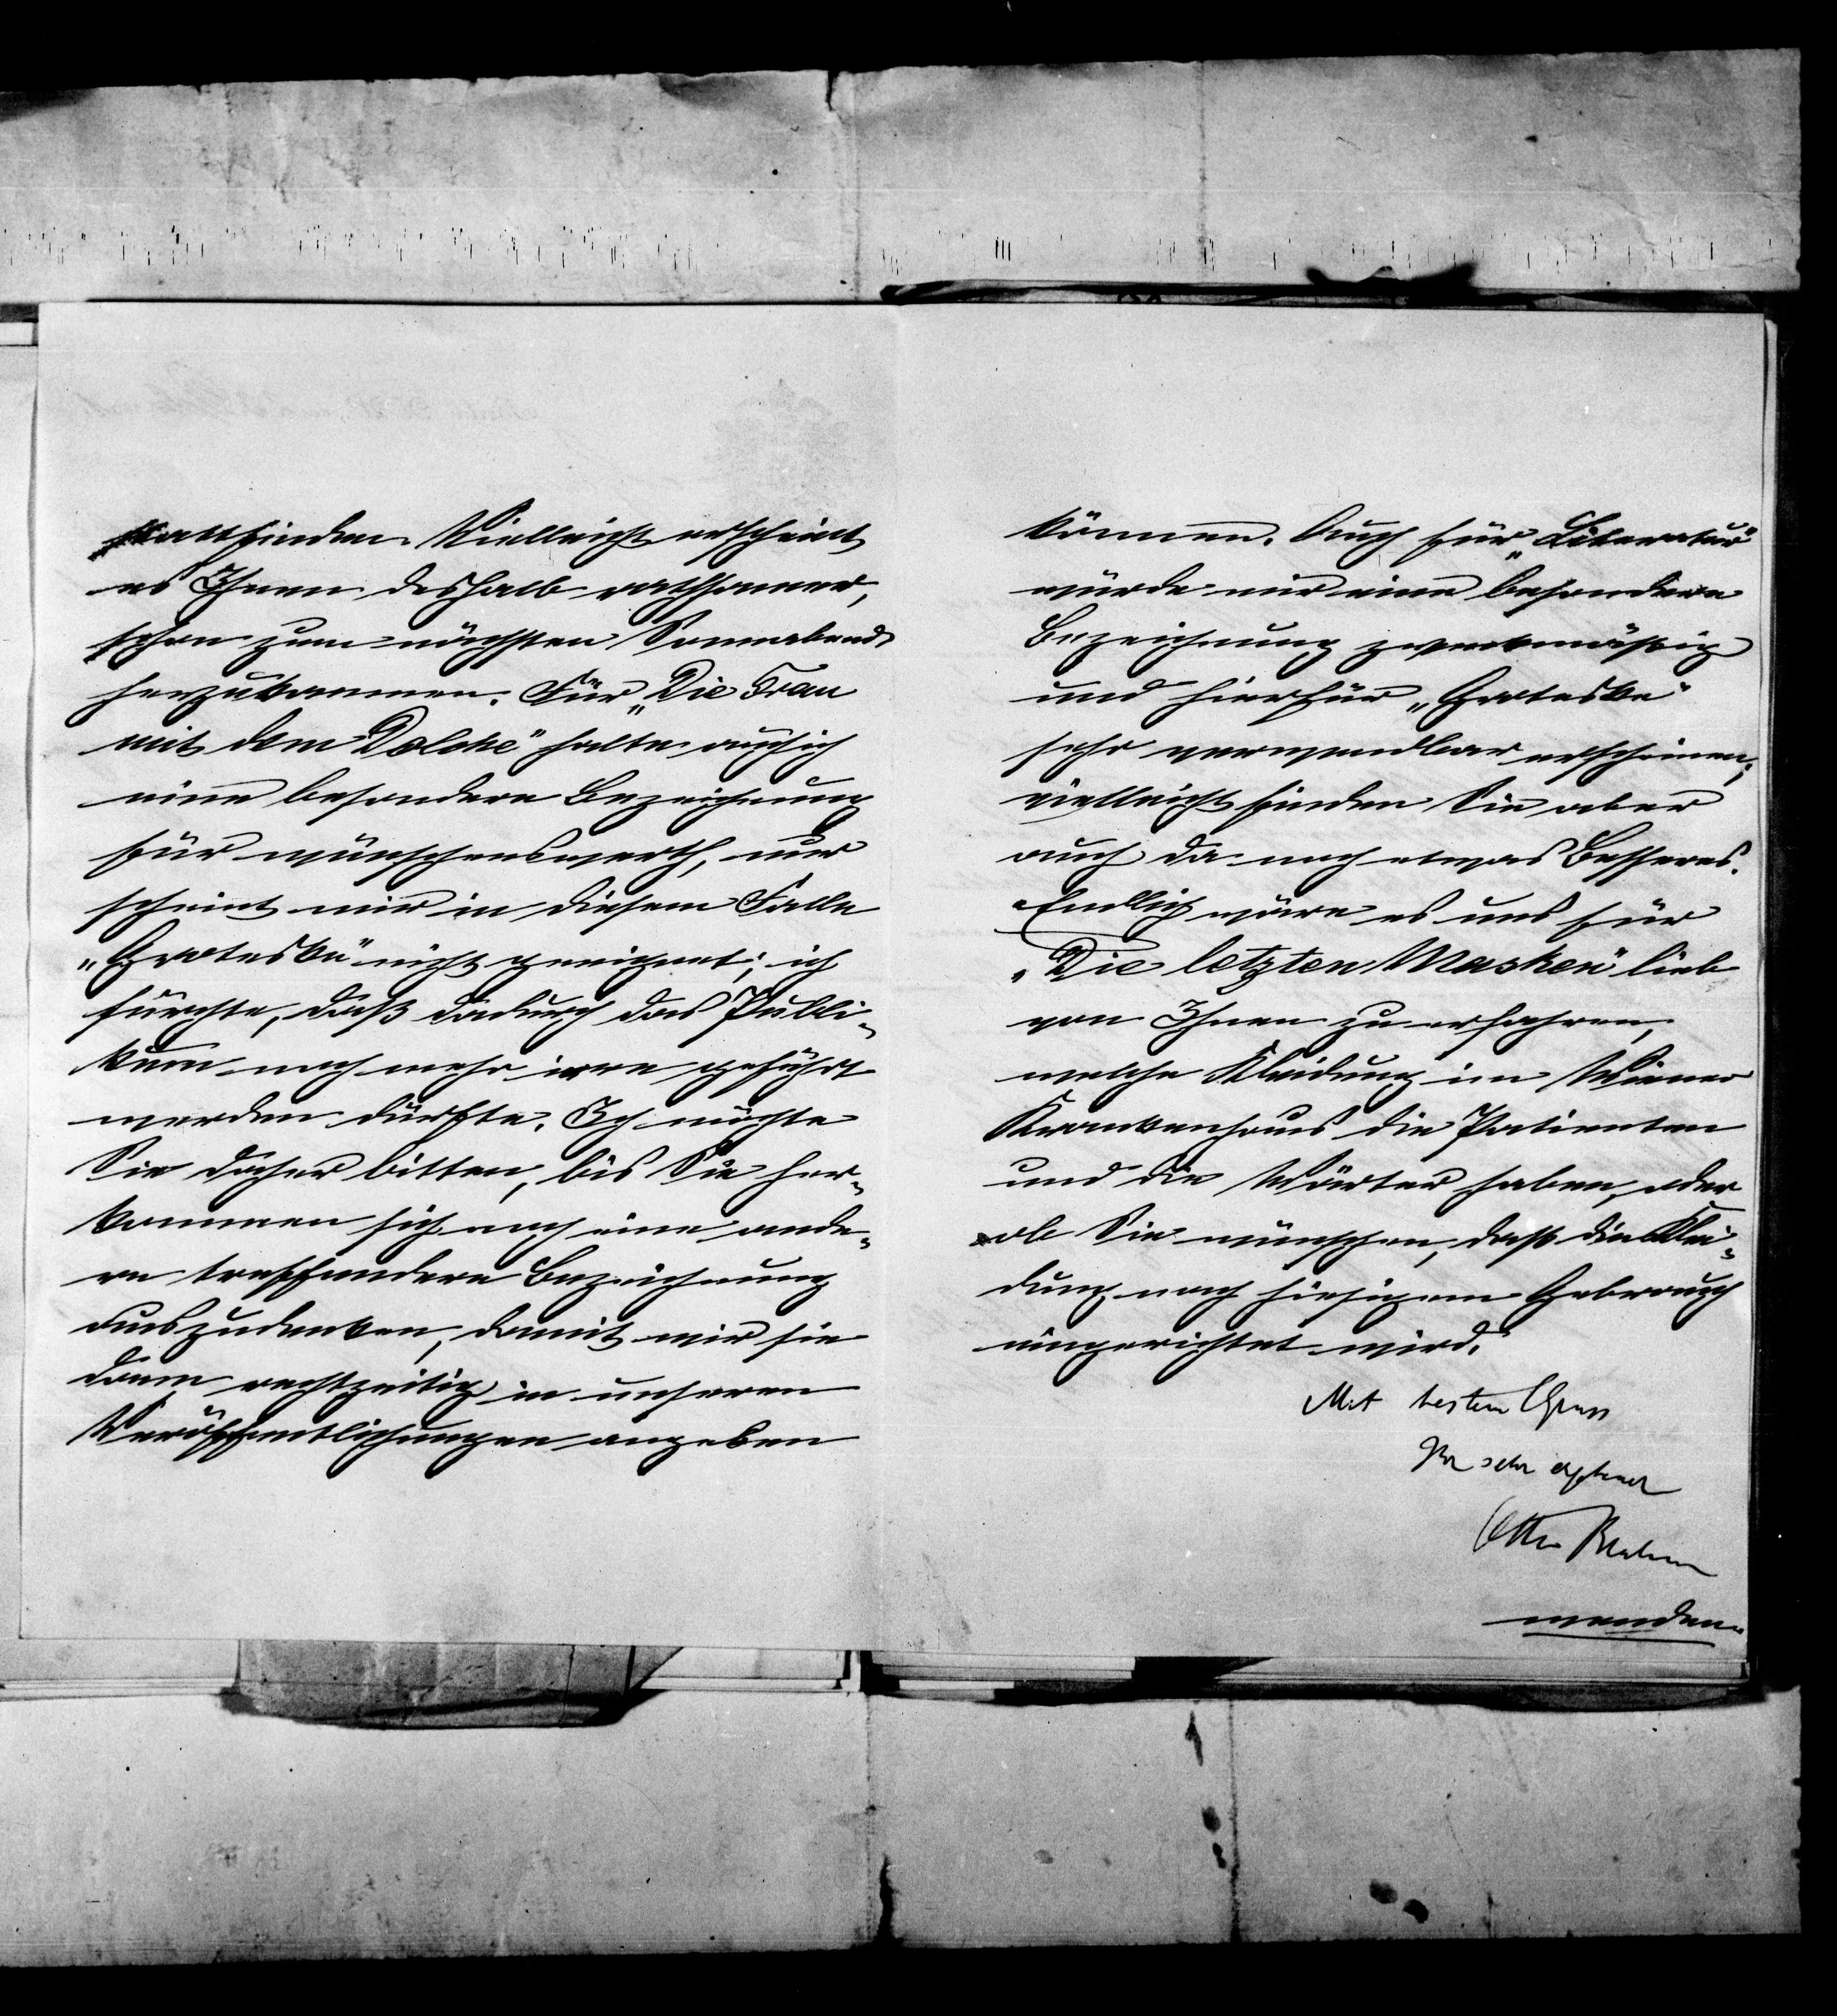 stattfinden. Vielleicht erscheint
es Ihnen deshalb rathsamer,
schon zum nächsten Sonnabend
herzukommen. Für „Die Frau
mit dem Dolche" halte auch ich
eine besondere Bezeichnung
für wünschenswerth, nur
scheint mir in diesem Falle
„Groteske" nicht geeignet; ich
fürchte, daß dadurch das Publi-
kum noch mehr irre geführt
werden dürfte. Ich möchte
Sie daher bitten, bis Sie her-
kommen sich noch eine ande-
re treffendere Bezeichnung
auszudenken, damit wir sie
dann rechtzeitig in unseren
Veröffentlichungen angeben
können. Auch für „Literatur"
würde mir eine besondere
Bezeichnung zweckmässig
und hierfür „Groteske"
sehr verwendbar erscheinen;
vielleicht finden Sie aber
auch da noch etwas Besseres.
Endlich wäre es uns für
„Die letzten Masken" lieb
von Ihnen zu erfahren,
welche Kleidung im Wiener
Krankenhaus die Patienten
und die Wärter haben, oder
ob Sie wünschen, dass die Klei-
dung nach hiesigem Gebrauch
eingerichtet wird.
Mit bestem Gruss
Ihr sehr ergebener
Otto Brahm
wenden.